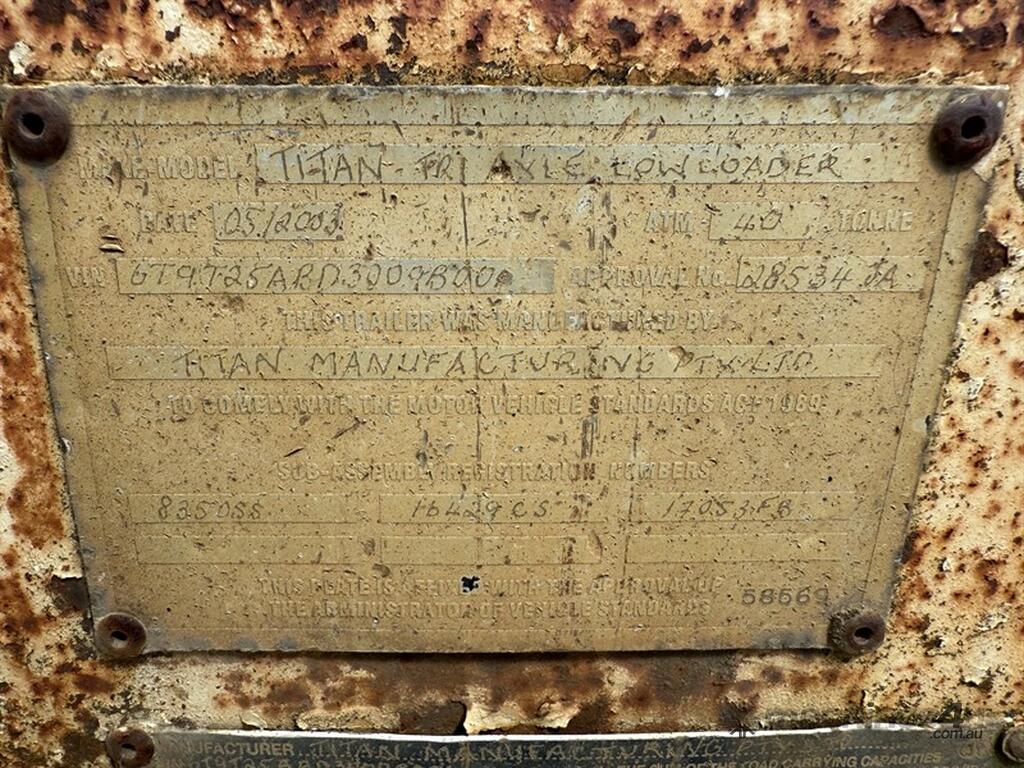 MAKE-MODEL TITAN TRI AXLE LOWLOADER
DATE 05/2003 ATM 40 TONNE
VIN 6T9T25ABD3009B00 APPROVAL No. 28534
THIS TRAILER WAS MANUFACTURED BY
TITAN MANUFACTURING PTY. LTD.
TO COMPLY WITH THE MOTOR VEHICLE STANDARDS ACT 1989
SUB-ASSEMBLY REGISTRATION NUMBERS
8250SS 16429CS 17053FB
THIS PLATE IS AFFIXED WITH THE APPROVAL OF
THE ADMINISTRATOR OF VEHICLE STANDARDS 58569
MANUFACTURER TITAN MANUFACTURING PTY
THE ROAD CARRYING CAPACITIES
.com.au